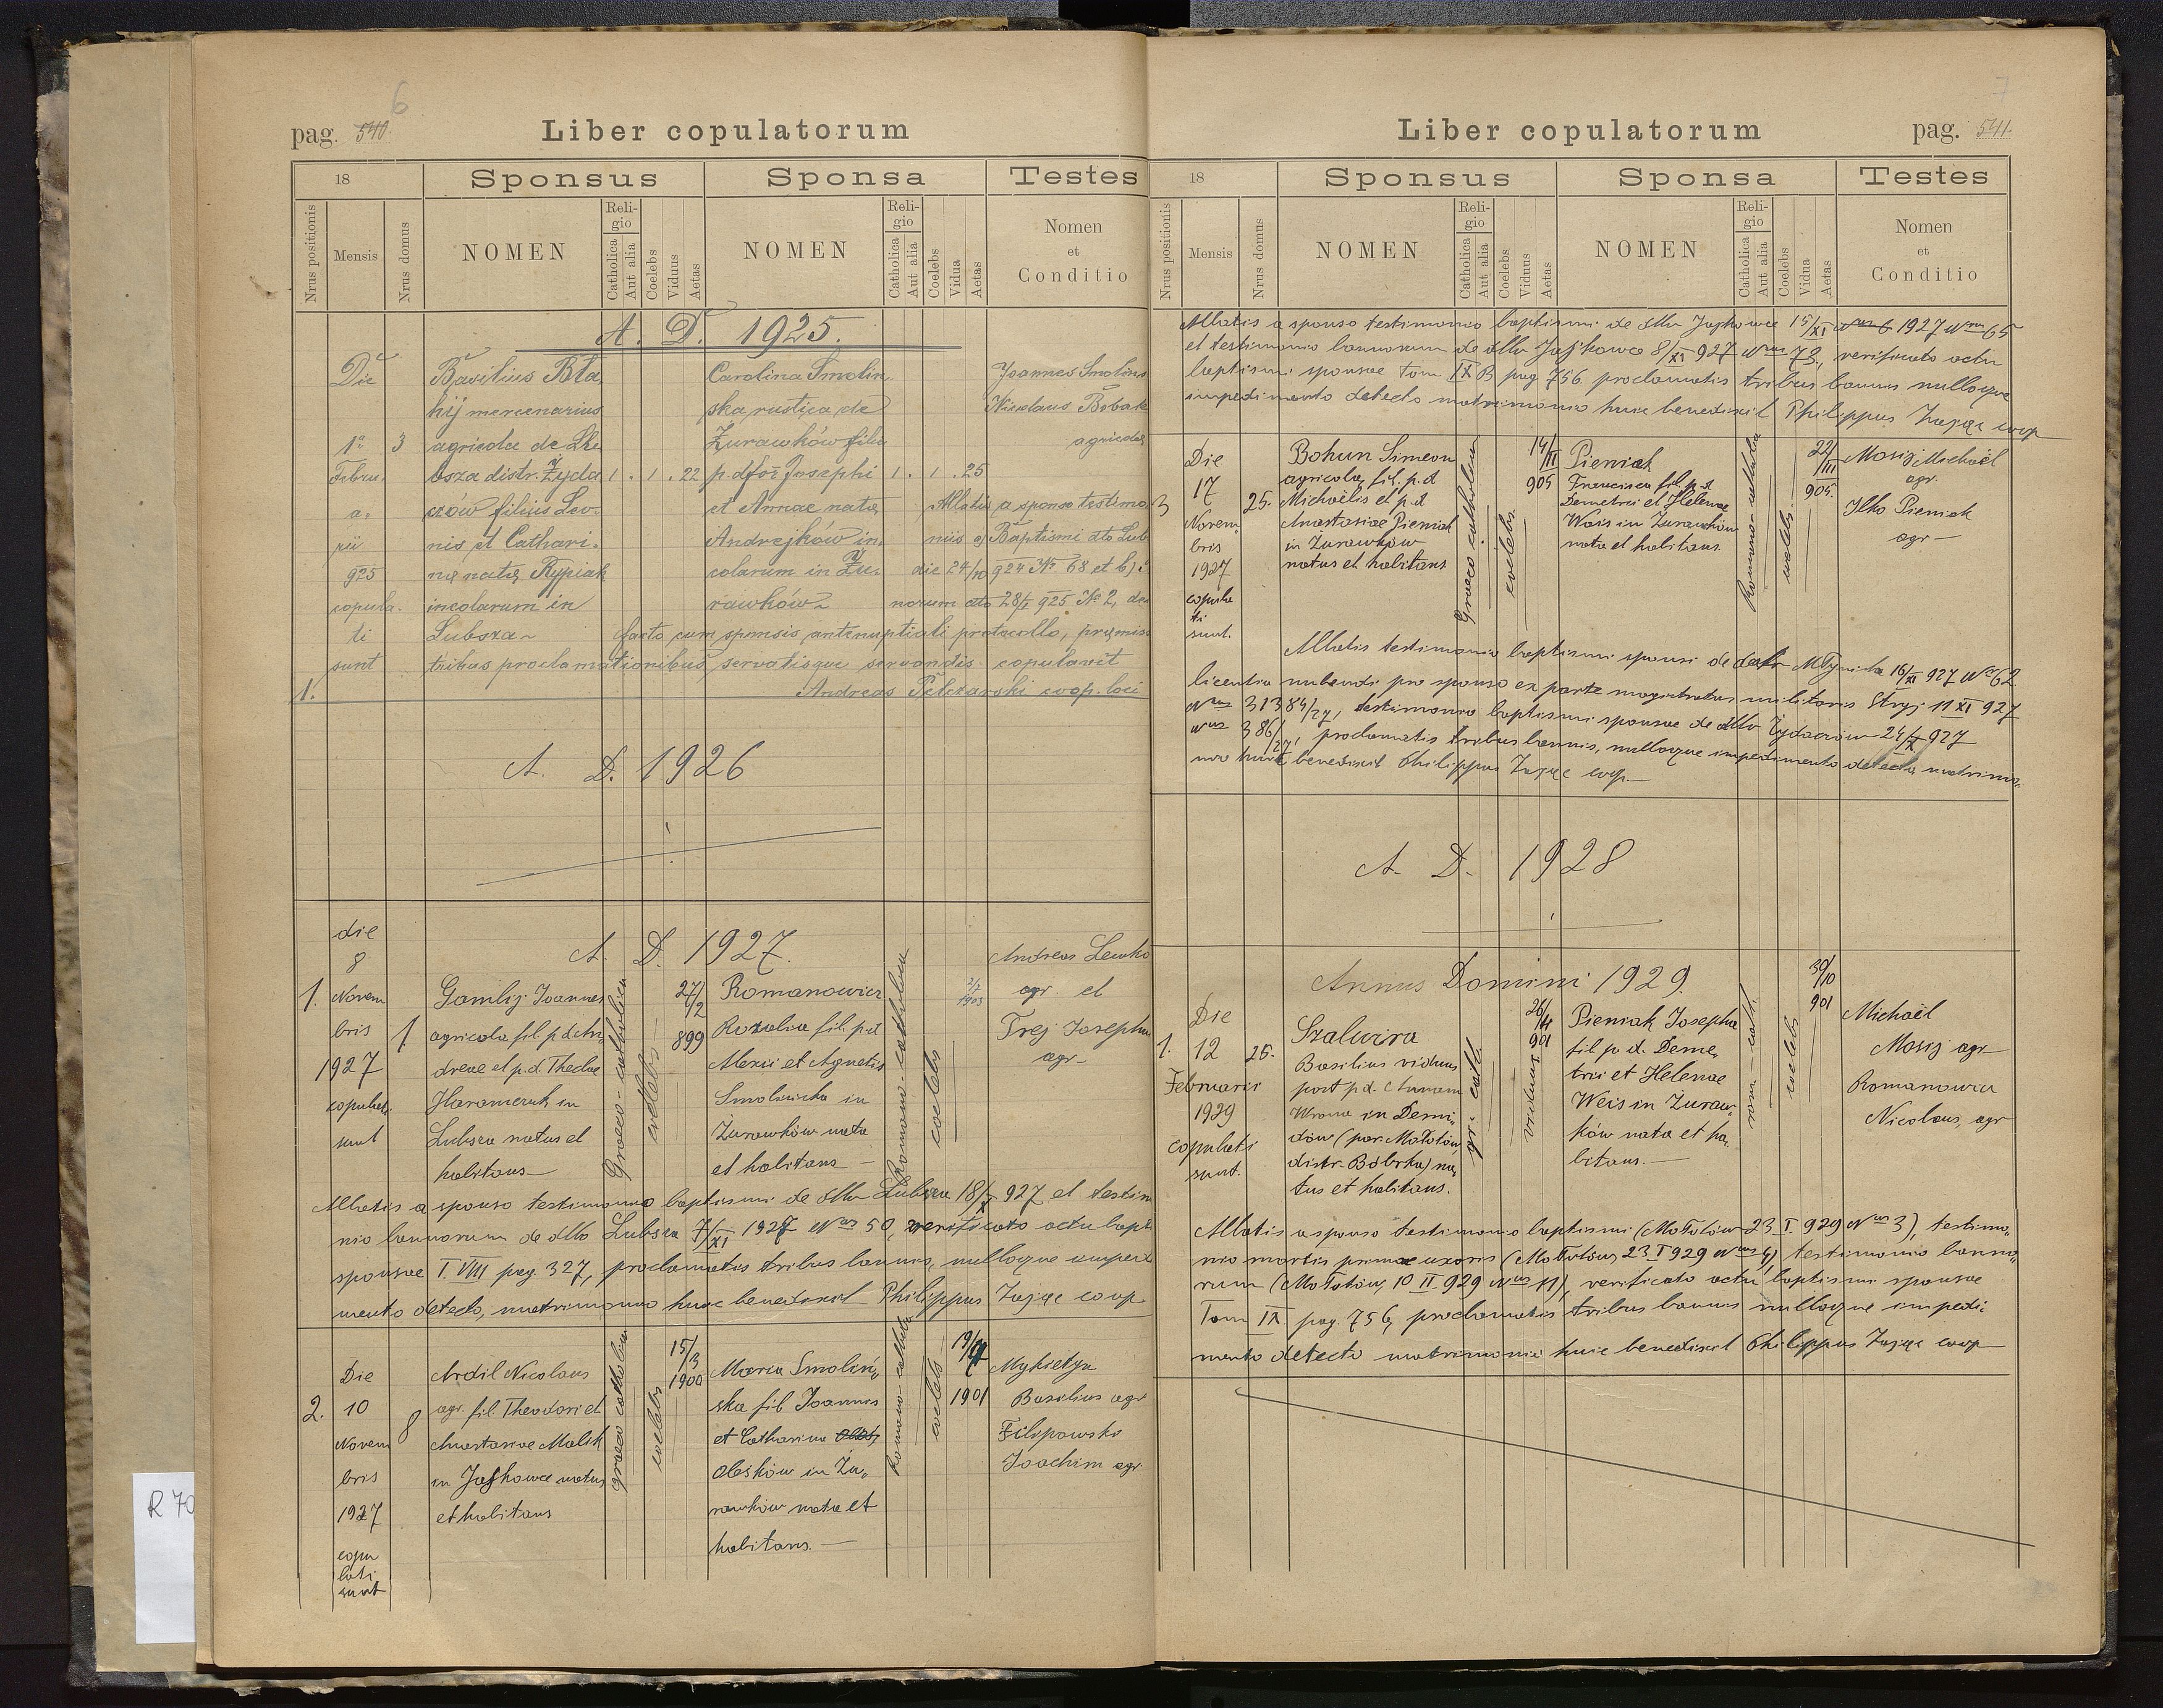 6
pag. 540.
Liber copulatorum
18
Sponsus
Sponsa
Testes
Nrus positionis
Mensis
Nrus domus
NOMEN
Reli-
gio
Catholica
Aut alia
Coelebs
Viduus
Aetas
NOMEN
Reli-
gio
Catholica
Aut alia
Coelebs
Vidua
Aetas
Nomen
et
Conditio
A. D. 1925.
Die
1a
Febru.
a-
rii
925
copula.
ti
sunt
1.
3
Basilius Bła
hij mercenarius
agricola de Lu
bsza distr. Żyda
czów filius Leo-
nis et Cathari-
nę natę Rypiak
incolarum in
Lubsza
1 . 1 . 22
Carolina Smolin
ska rustica de
Żurawków filia
p. dfor Josephi
et Annae natę
Andrejków in.
colarum in Żu.
rawków
1 . 1 . 25
Joannes Smolins
Nicolaus Bobak
agricolae
Allatis a sponso testimo
niis a) Baptismi dto Lub
die 24/10 924 No 68 et b)
norum dto 28/I 925 No 2, de
facto cum sponsis antenuptiali protocollo, pręmiss
tribus proclamationibus servatisque servandis copulavit
Andreas Pelczarski coop. loci
A. D. 1926
A. D. 1927.
1.
die
8
Novem
bris
1927
copulati
sunt
1
Gamlij Joannes
agricola fil. p. d. An
dreae et p. d. Theclae
Harameruk in
Lubsza natus et
habitans
Graeco-catholica
coelebs
27/2
899
Romanowicz
Rozalia fil. p. d
Alexii et Agnetis
Smolinska in
Żurawków nata
et habitans
Romano-catholica
coelebs
2/7
1903
Andreas Lewko
agr. et
Trej Josephus
agr
Allatis a sponso testimonio baptismi de dtto Lubsza 18/X 927 et testim
nio bannorum de dtto Lubsza 7/XI 1927 Nus 50, verificato actu bapti
sponsae T. VIII pag. 327, proclamatis tribus bannis, nulloque impedi
mento detecto, matrimonio huic benedixit Philippus Zając coop
2.
Die
10
Novem
bris
1927
copu
lati
sunt
8
Ardil Nicolaus
agr. fil. Theodori et
Anastasiae Malik
in Jajkowce natus
et habitans
graeco catholica
coelebs
15/3
1900
Maria Smoliń„
ska fil Joannis
et Catharina
Oleśków in Żu„
rawków nata et
habitans.
Romano-catholica
coelebs
1901
Mykietyn
Basilius agr
Filipowski
Joachim agr.
R 70
7
Liber copulatorum
pag. 541.
18
Sponsus
Sponsa
Testes
Nrus positionis
Mensis
Nrus domus
NOMEN
Reli-
gio
Catholica
Aut alia
Coelebs
Viduus
Aetas
NOMEN
Reli-
gio
Catholica
Aut alia
Coelebs
Vidua
Aetas
Nomen
et
Conditio
Allatis a sponso testimonio baptismi de dtto Jajkowce 15/XI 1927 Nrus 65
et testimonio bannorum de dtto Jajkowce 8/XI 927 Nrus 73, verificato actu
baptismi sponsae Tom IX B pag 756. proclamatis tribus bannis nulloque
impedimento detecto matrimonio huic benedixit Philippus Zając coop
3
Die
17
Novem
bris
1927
copula
ti
sunt.
25.
Bohun Simeon
agricola, fil. p. d
Michaelis et p. d
Anastasiae Pieniak
in Żurawków
natus et habitans
Graeco catholica
coelebs
14/II
905
Pieniak
Francisca fil. p. d
Demetrii et Helenae
Wais in Żurawków
nata et habitans.
Romano-catholica
coelebs
22/III
905.
Mosij Michaël
agr.
Ilko Pieniak
agr
Allatis testimonio baptismi sponsi de dato Młyniska 16/XI 927 No 62
licentia nubendi pro sponso ex parte magistratus militaris Stryj 11 XI 927
Nrus 31384/27, testimonio baptismi sponsae de dtto Żydaczów 24/X 927
Nrus 386/27, proclamatis tribus bannis, nulloque impedimento detecto matrimo
nio huic benedixit Philippus Zając coop.
A. D. 1928
Annus Domini 1929.
1.
Die
12
Februarii
1929
copulati
sunt.
25.
Szalwira
Basilius viduus
post p. d. Annam
Wrona in Demi„
dów (par. Mołotów,
distr. Bóbrka) na„
tus et habitans.
gr. cath.
viduus
901
Pieniak Josepha
fil p. d. Deme„
trii et Helenae
Weis in Żuraw„
ków nata et ha„
bitans.
rom-cath.
coelebs
30/10
901
Michaël
Mosij agr
Romanowicz
Nicolaus, agr
Allatis a sponso testimonio baptismi (Mołotów 23 I. 929 Nus 3), testimo„
nio mortis primae uxoris (Mołotów, 23 I 929 Nus 4), testimonio banno„
rum (Mołotów, 10 II. 929 Nus 11), verificato actu baptismi sponsae
Tom IX pag. 756, proclamatis tribus bannis nulloque impedi
mento detecto matrimonio huic benedixit Philippus Zając coop